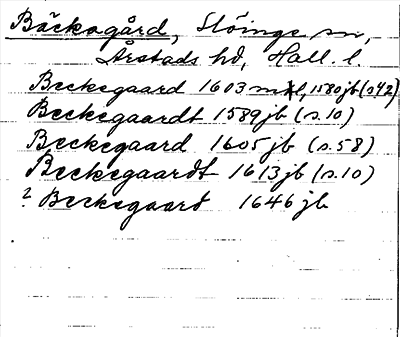 Bäckagård, Slöinge sn,
Årstads hd, Hall. l.
Beckegaard 1603 mtl, 1580 jb (s 42)
Beckegaardt 1589 jb (s. 10)
Beckegaard 1605 jb (s. 58)
Beckegaardt 1613 jb (s. 10)
? Beckegaard 1646 jb